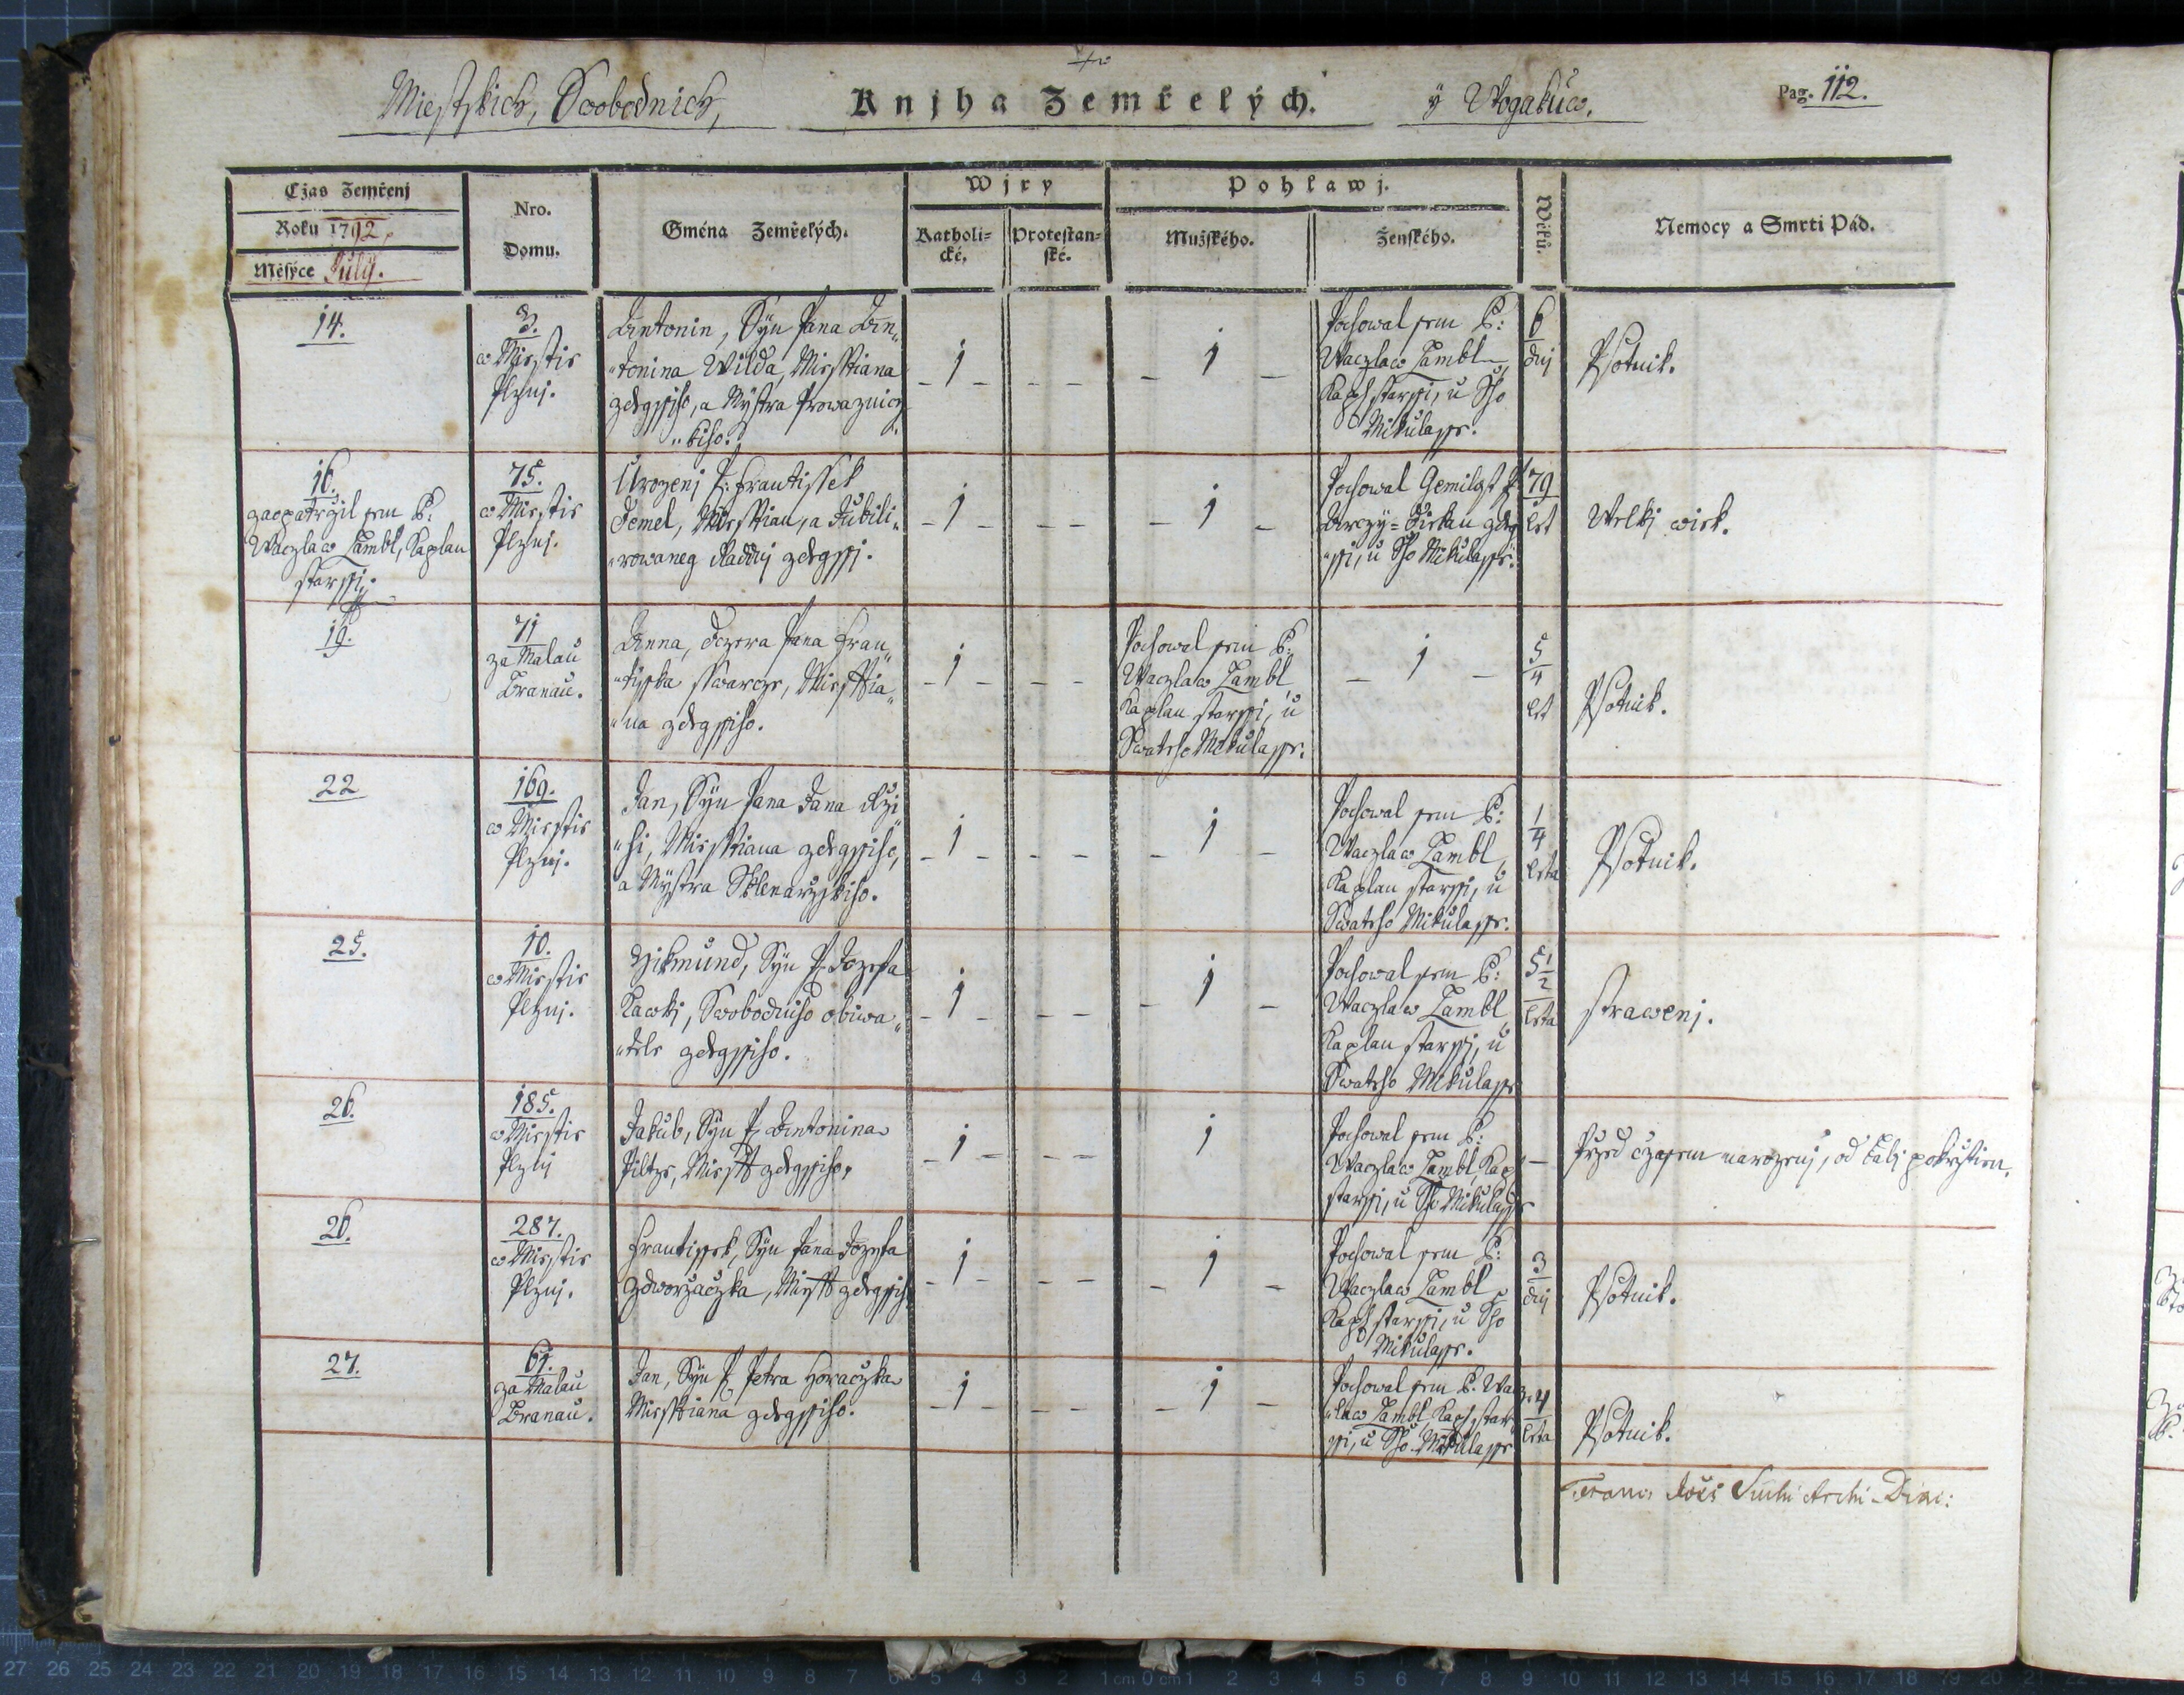 Miestskich, Swobodnich,
Knjha Zemřelých.
ÿ Wogakůw.
Pag. 112.
Cžas Zemřenj
Roku 1792,
Měsýce Julÿ.
Nro.
Domu.
Gména Zemřelých.
Wjry
Katholi=
cké.
Protestan=
ské.
Pohlawj.
Mužského.
Ženského.
Wěků.
Nemocy a Smrti Pád.
14.
3.
w Miestie
Plznj.
Antonin, Syn Pana An„
„tonina Wilda, Miesstiana
zdegssiho, a Mystra Prowaznicz„
„kiho.
- 1 -
- -
- 1 -
Pochowal sem P:
Waczlaw Lambl
Kapl starssi, u Sho
Mikulasse.
6
dnj
Psotnik.
16.
zaopatrzil sem P:
Waczlaw Lambl, Kaplan
starssi.
75.
w Miestie
Plznj.
Urozenj P: Frantissek
Demel, Miesstian, a Jubili„
„rowaneg Raddnj zdegssj.
- 1 -
- -
- 1 -
Pochowal Gemilgst P
Arczÿ=Diekan zdeg
„ssi, u Sho Mikulasse.
79
let
Welkj wiek.
19.
71
za Malau
Branau.
Anna, Dczera Pana Fran„
„tisska Swarcze, Miesstia„
„na zdegssiho.
- 1 -
- -
Pochowal sem P:
Waczlaw Lambl
Kaplan starssi, u
Swateho Mikulasse.
- 1 -
5/4
let
Psotnik.
22
169.
w Miestie
Plznj.
Jan, Syn Pana Jana Rzi
„hi, Miesstiana zdegssiho,
a Mystra Sklenarzskiho.
- 1 -
- -
- 1 -
Pochowal sem P:
Waczlaw Lambl,
Kaplan starssi, u
Swateho Mikulasse.
1/4
leta
Psotnik.
25.
10.
w Miestie
Plznj.
Zikmund, Syn P. Jozefa
Kawki, Swobodniho obiwa„
„tele zdegssiho.
- 1 -
- -
- 1 -
Pochowal sem P:
Waczlaw Lambl
Kaplan starssi, u
Swateho Mikulasse
5 1/2
leta
strawenj.
26.
185.
w Miestie
Plznj
Jakub, Syn P. Antonina
Piltze, Miesst zdegssiho,
- 1 -
- -
1
Pochowal sem P:
Waczlaw Lambl, Kapl
starssi, u Sho Mikulasse
-
Przed czasem narozenj, od Babj pokrztien.
26.
287.
w Miestie
Plznj.
Frantissek, Syn Pana Jozefa
Zdworzaczka, Miesst zdegssiho
- 1 -
- -
- 1 -
Pochowal sem P:
Waczlaw Lambl
Kapl starssi, u Sho
Mikulasse.
3
dnj
Psotnik.
27.
61.
za Malau
Branau.
Jan, Syn P. Petra Horaczka
Miesstiana zdegssiho.
- 1 -
- -
- 1 -
Pochowal sem P. Wacz
„law Lambl, Kapl star
ssi, u Sho Mikulasse
4
leta
Psotnik.
Archi-Diac: